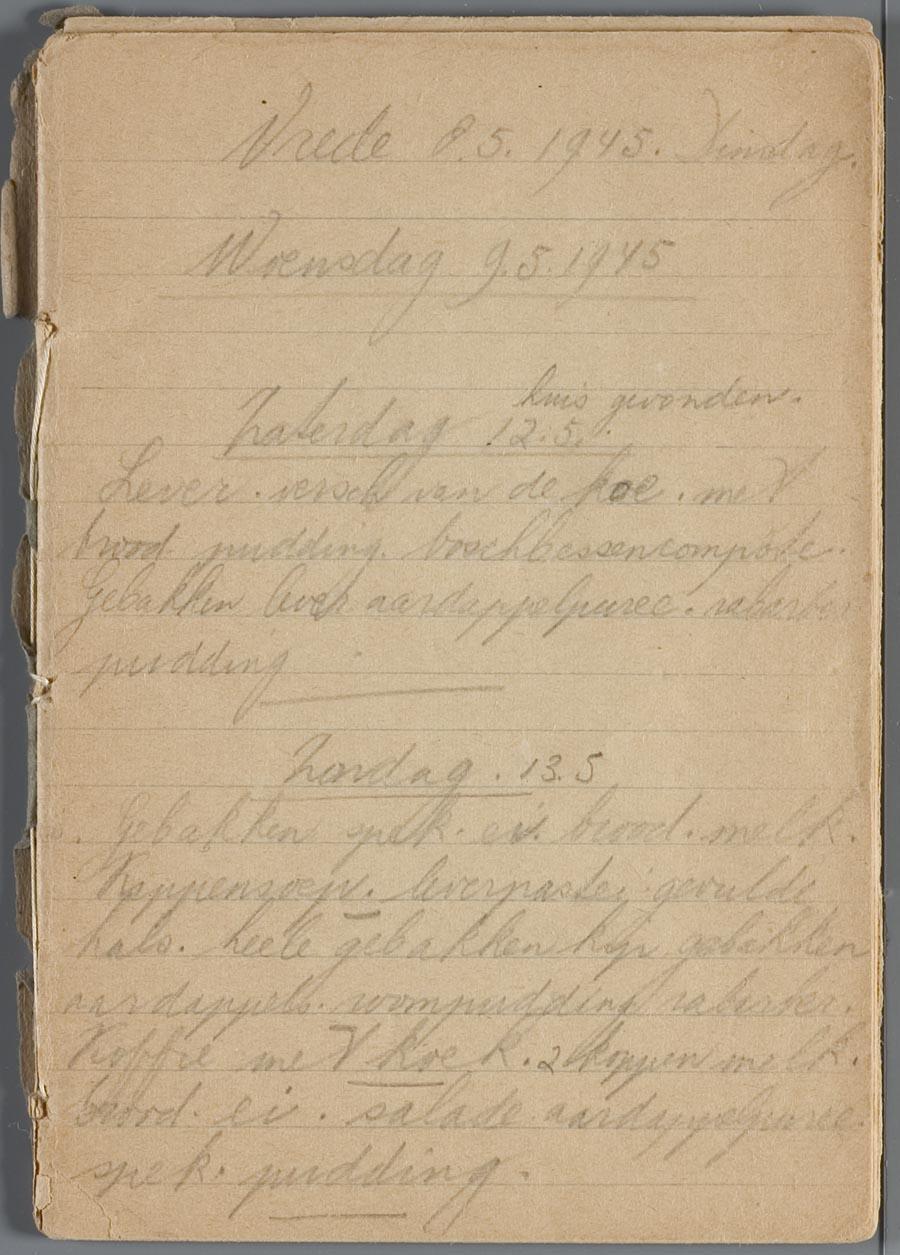 Vrede 8.5.1945. Dinsdag.
Woensdag 9.5.1945
huis gevonden.
Zaterdag 12.5.
Lever versch van de koe. met
brood pudding. boschbessencompote.
Gebakken lever aardappelpuree. rabarber
pudding
Zondag. 13.5
Gebakken spek. ei. brood. melk.
Kippensoep. leverpastei gevulde
hals. heele gebakken kip gebakken
aardappels. roompudding rabarber.
Koffie met koek. 2 koppen melk.
brood. ei. salade aardappelpuree.
spek. pudding.